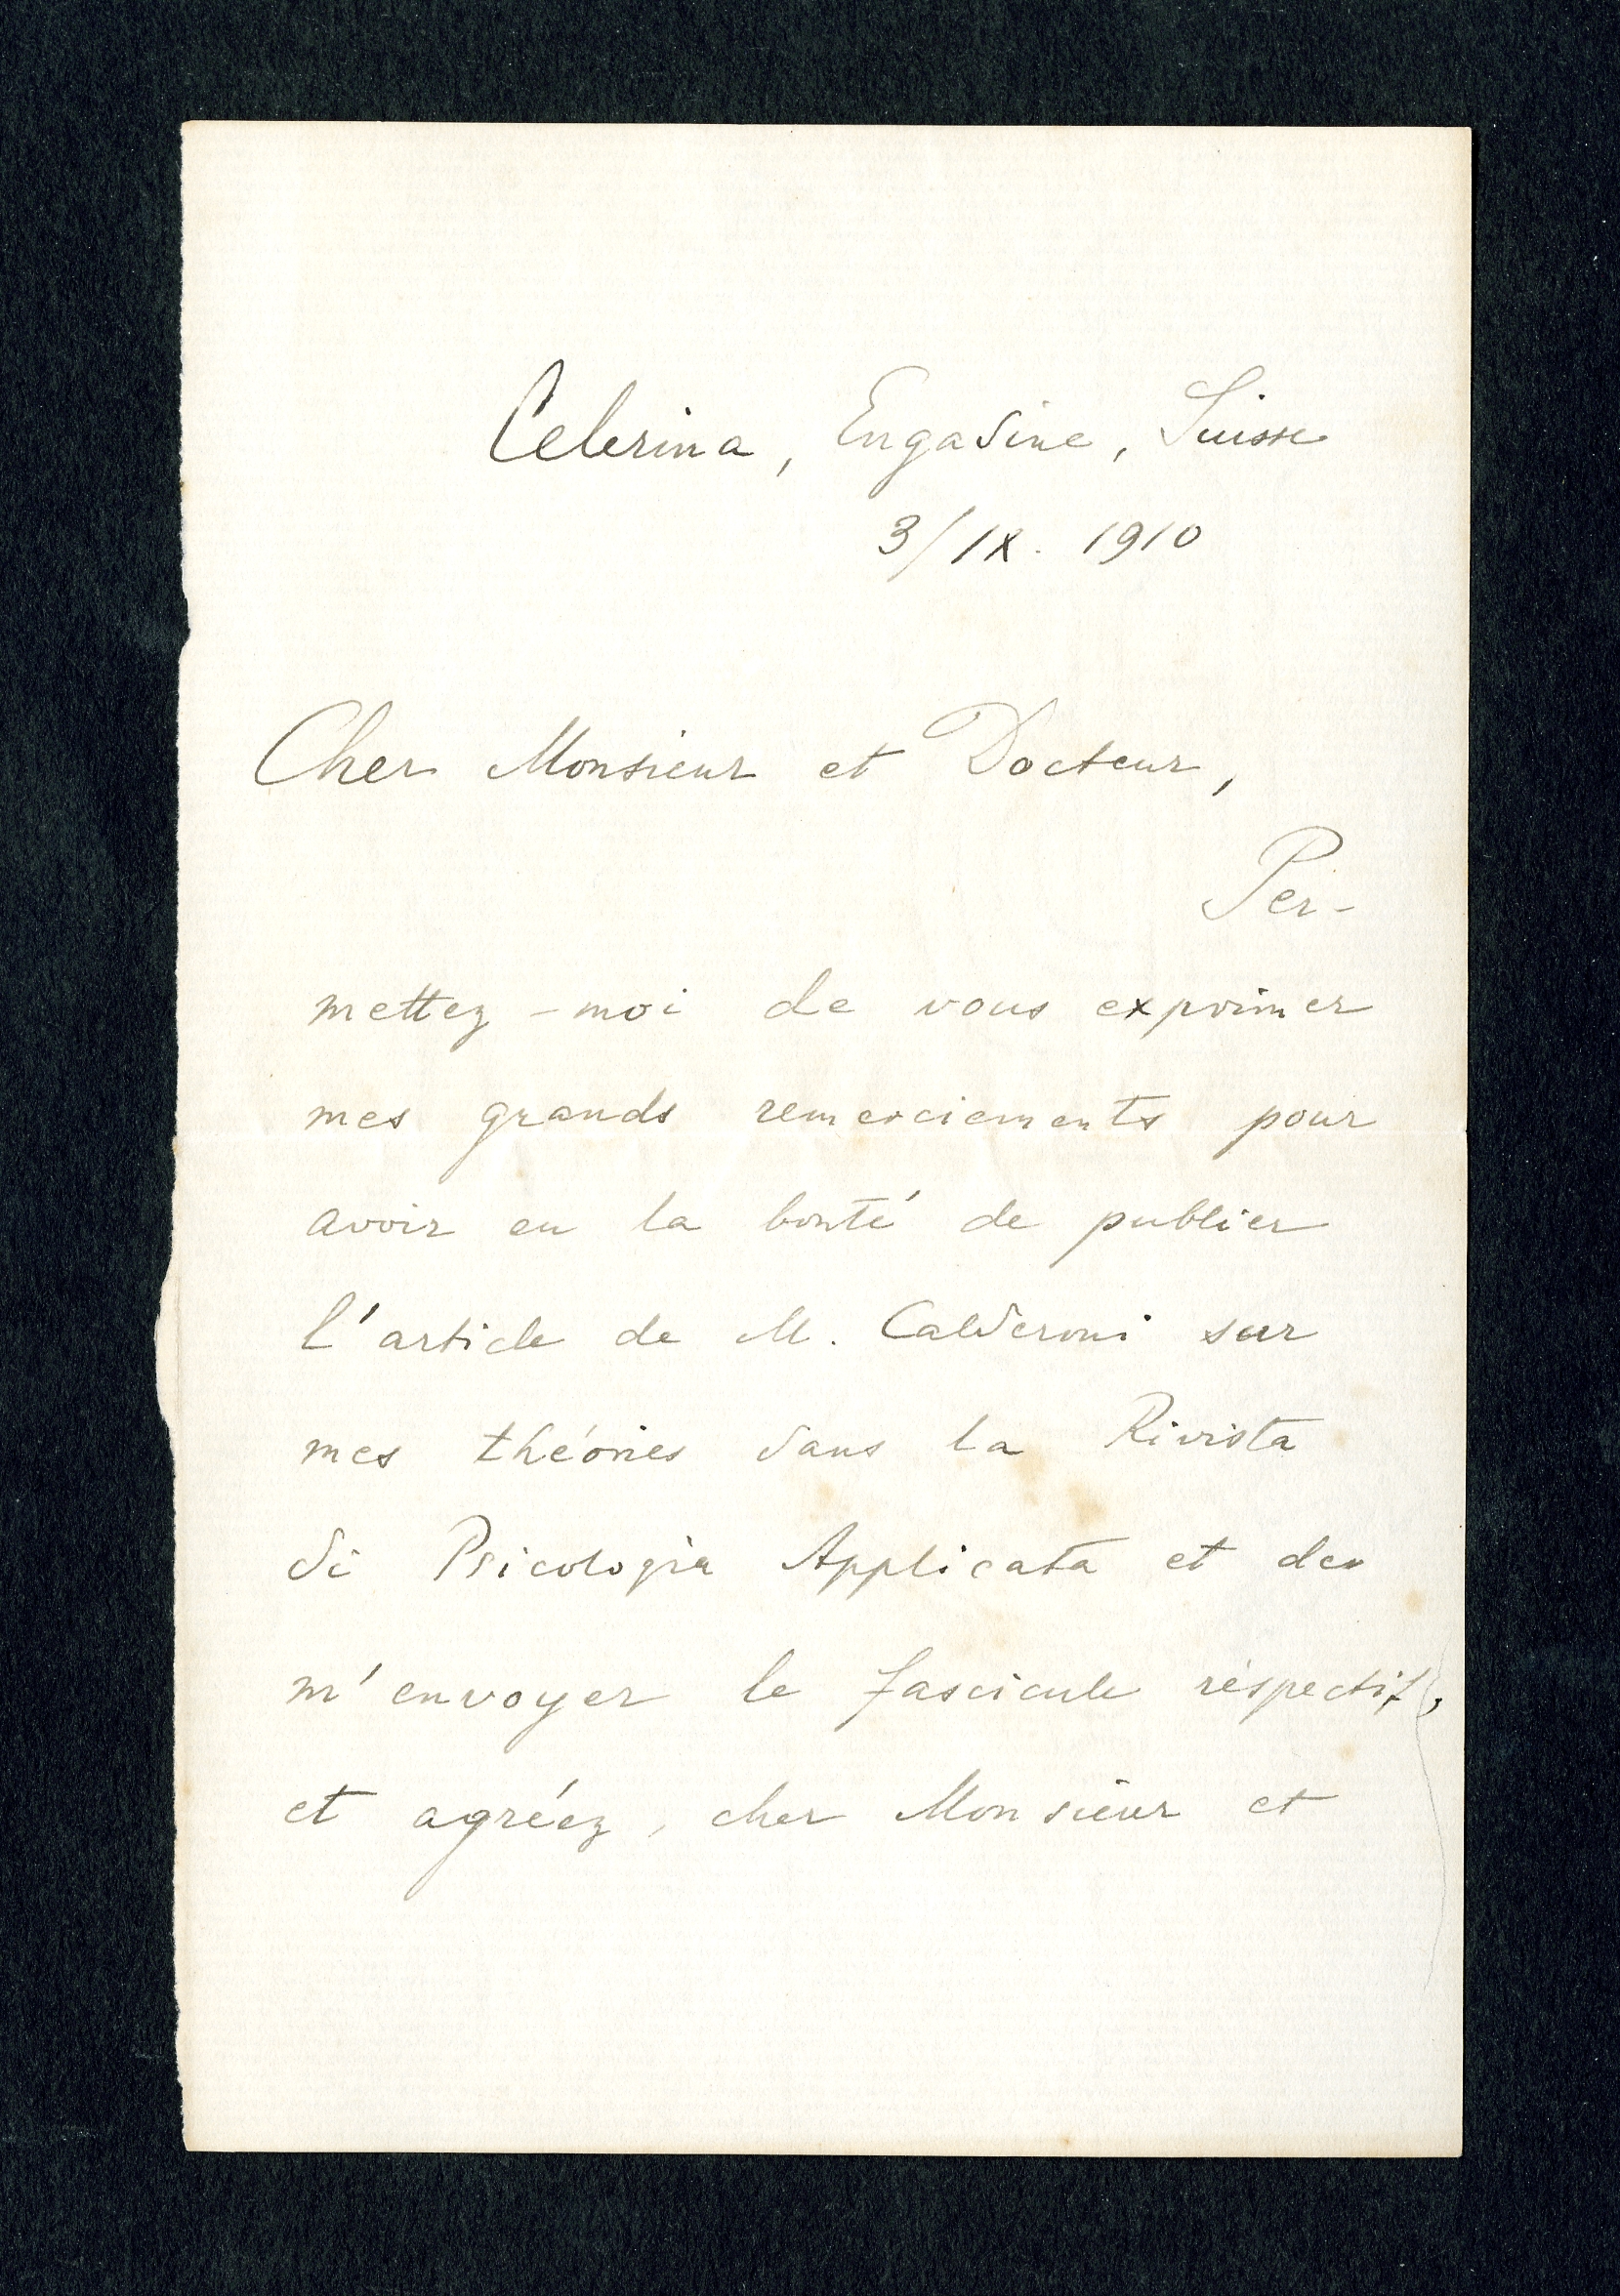 Celerina, Engadine, Suisse
3/IX. 1910
Cher Monsieur et Docteur,
Per-
mettez-moi de vous exprimer
mes grands remerciements pour
avoir eu la bonté de publier
l'article de M. Calderoni sur
mes théories dans la Rivista
di Psicologia Applicata et de
m'envoyer le fascicule réspectif,
et agréez, cher Monsieur et